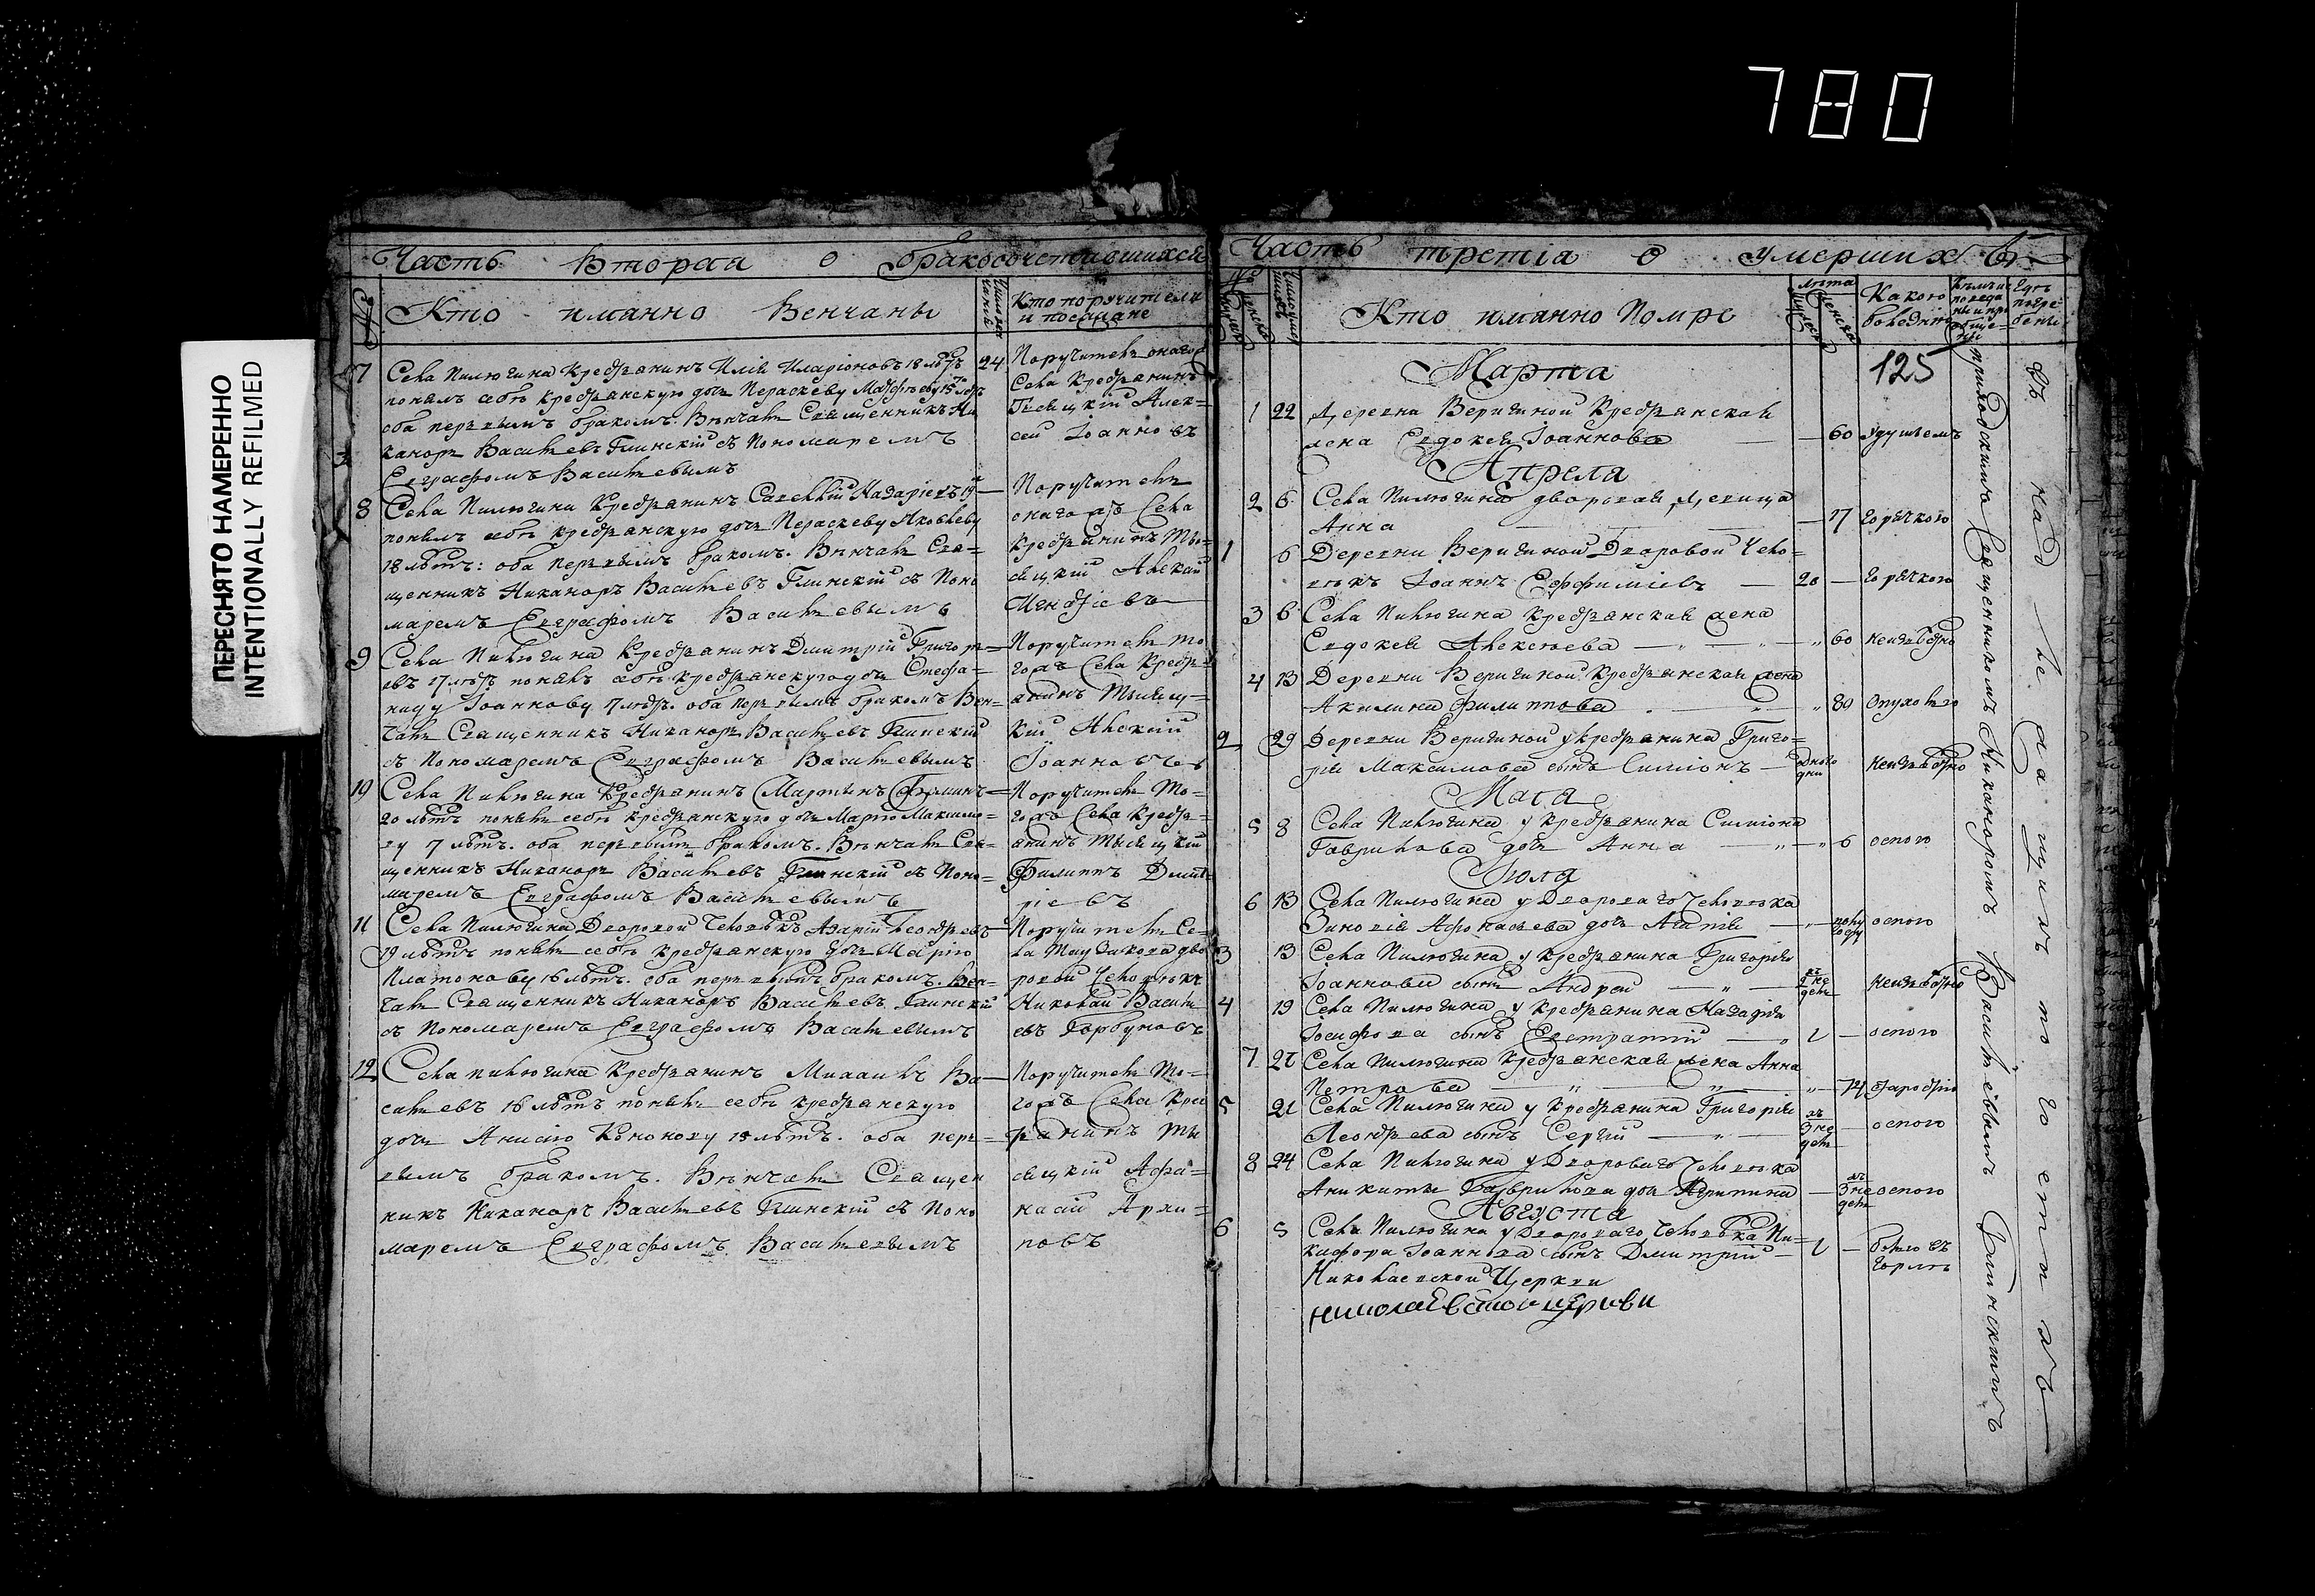 780
ПЕРЕСНЯТО НАМЕРЕННО
INTENTIONALLY REFILMED
Часть Вторая о бракосочетавшихся
№
Кто имянно Венчаны
Кто поручители
и посажане
7 Села Пилюгина Крестьянинъ Илія Иларіоновъ 18 лѣтъ 24
понялъ себѣ крестьянскую дочь Параскеву
оба первымъ бракомъ. Вѣнчалъ Священникъ Ни
каноръ Васильевъ Глинскій съ Пономаремъ
Евграфомъ Васильевымъ
Поручитель
Села Крестьянинъ
Алек=
сей Іоанновъ
8 Села Пилюгина Крестьянинъ Савелій Назаріевъ 19
понялъ себѣ крестьянскую дочь Параскеву Яковлеву
18 лѣтъ: оба первымъ бракомъ. Вѣнчалъ Свя=
щенникъ Никаноръ Васильевъ Глинскій съ Поно
маремъ Евграфомъ Васильевымъ
Поручитель
онагожъ Села
Крестьянинъ
9 Села Пилюгина Крестьянинъ Дмитрій Григорь=
евъ 17 лѣтъ понялъ себѣ крестьянскую дочь Стефа=
ниду Іоаннову 17 лѣтъ. оба первымъ бракомъ Вен=
чалъ Священникъ Никаноръ Васильевъ Глинскій
съ Пономаремъ Евграфомъ Васильевымъ
Поручитель то
гожъ Села Крестья
кій Алексій
Іоанновъ
10 Села Пилюгина Крестьянинъ Мартынъ
20 лѣтъ понялъ себѣ крестьянскую дочь Марію Максимо=
ву 17 лѣтъ. оба первымъ бракомъ. Вѣнчалъ Свя=
щенникъ Никаноръ Васильевъ Глинскій съ Поно=
маремъ Евграфомъ Васильевымъ
Поручитель то=
гожъ Села Крестья=
Филиппъ Дмит=
ріевъ
11 Села Пилюгина Дворовой Человѣкъ Азарій Леонтьевъ
19 лѣтъ понялъ себѣ крестьянскую дочь Марію
Платонову 16 лѣтъ. оба первымъ бракомъ. Вен=
чалъ Священникъ Никаноръ Васильевъ Глинскій
съ Пономаремъ Евграфомъ Васильевымъ
Поручитель Се=
ровой человѣкъ
Николай Василь
евъ Горбуновъ
12 Села пилюгина Крестьянинъ Михаилъ Ва=
сильевъ 18 лѣтъ понялъ себѣ крестьянскую
дочь Анисію Кононову 18 лѣтъ. оба пер=
вымъ бракомъ. Вѣнчалъ Священ
никъ Никаноръ Васильевъ Глинскій съ Поно
маремъ Евграфомъ Васильевымъ
Поручитель то=
гожъ Села Крес
Афа=
насій Архи=
повъ
Часть третія о умершихъ
Кто имянно Помре
лѣта
Какою
болезнію
125
Марта
1 22 Деревни Веригиной Крестьянская
жена Евдокея Іоаннова — 60 удушьемъ
Апреля
2 6 Села Пилюгина дворовая девица
Анна — 17 горячкою
1 6 Деревни Веригиной Дворовой Чело=
векъ Іоаннъ Ефѳиміевъ — 20 — горячкою
3 6 Села Пилюгина Крестьянская жена
Евдокея Алексеева — 60 неизвѣстно
4 13 Деревни Веригиной Крестьянская жена
Акилина Филиппова 80 Опухолью
2 29 Деревни Веригиной у крестьянина Григо=
рія Максимова сынъ Симіонъ — одного дни неизвѣстно
Маія
5 8 Села Пилюгина у крестьянина Симіона
Гаврилова дочь Анна — 6 оспою
Іюля
6 13 Села Пилюгина у Двороваго человека
Зиновія Афонасьева дочь Агапія — полу году оспою
3 13 Села Пилюгина у крестьянина Григорія
Іоаннова сынъ Андрей — неизвѣстно
4 19 Села Пилюгина у крестьянина Назарія
Іосифова сынъ Евстратій — 1 — оспою
7 20 Села Пилюгина Крестьянская жена Анна
Петрова — 74 старостію
5 21 Села Пилюгина у Крестьянина Григорія
Леонтьева сынъ Сергій — 3 не дель — оспою
8 24 Села Пилюгина у Двороваго человека
Аникиты Гаврилова дочь Агрипина — 3 не дель оспою
Августа
6 5 Села Пилюгина у Двороваго человѣка Ни=
кифора Іоаннова сынъ Дмитрій — 1 — болью въ
горлѣ
Николаевской Церкви
николаевской церкви
приходскимъ Священникомъ Никаноромъ Васильевымъ Глинскимъ